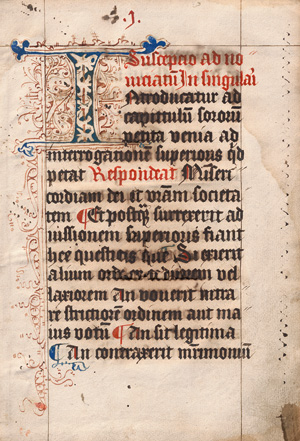 Susceptio ad no
uiciatū In singulari
Introducatur ad
capitulum soror
petita venia ad
interrogationē superioris q̇d
petat Respondeat Miseri
cordiam dei et vr̄am societa
tem Et postq̄ surrexerit ad
iussionem superioris fiant
hee questiōes que Si exierit
alium ordinem vel
laxiorem An vouerit intra
re strictiorē ordinem aut ma
ius votū An sit legitima
An contraxerit mr̄imoniū